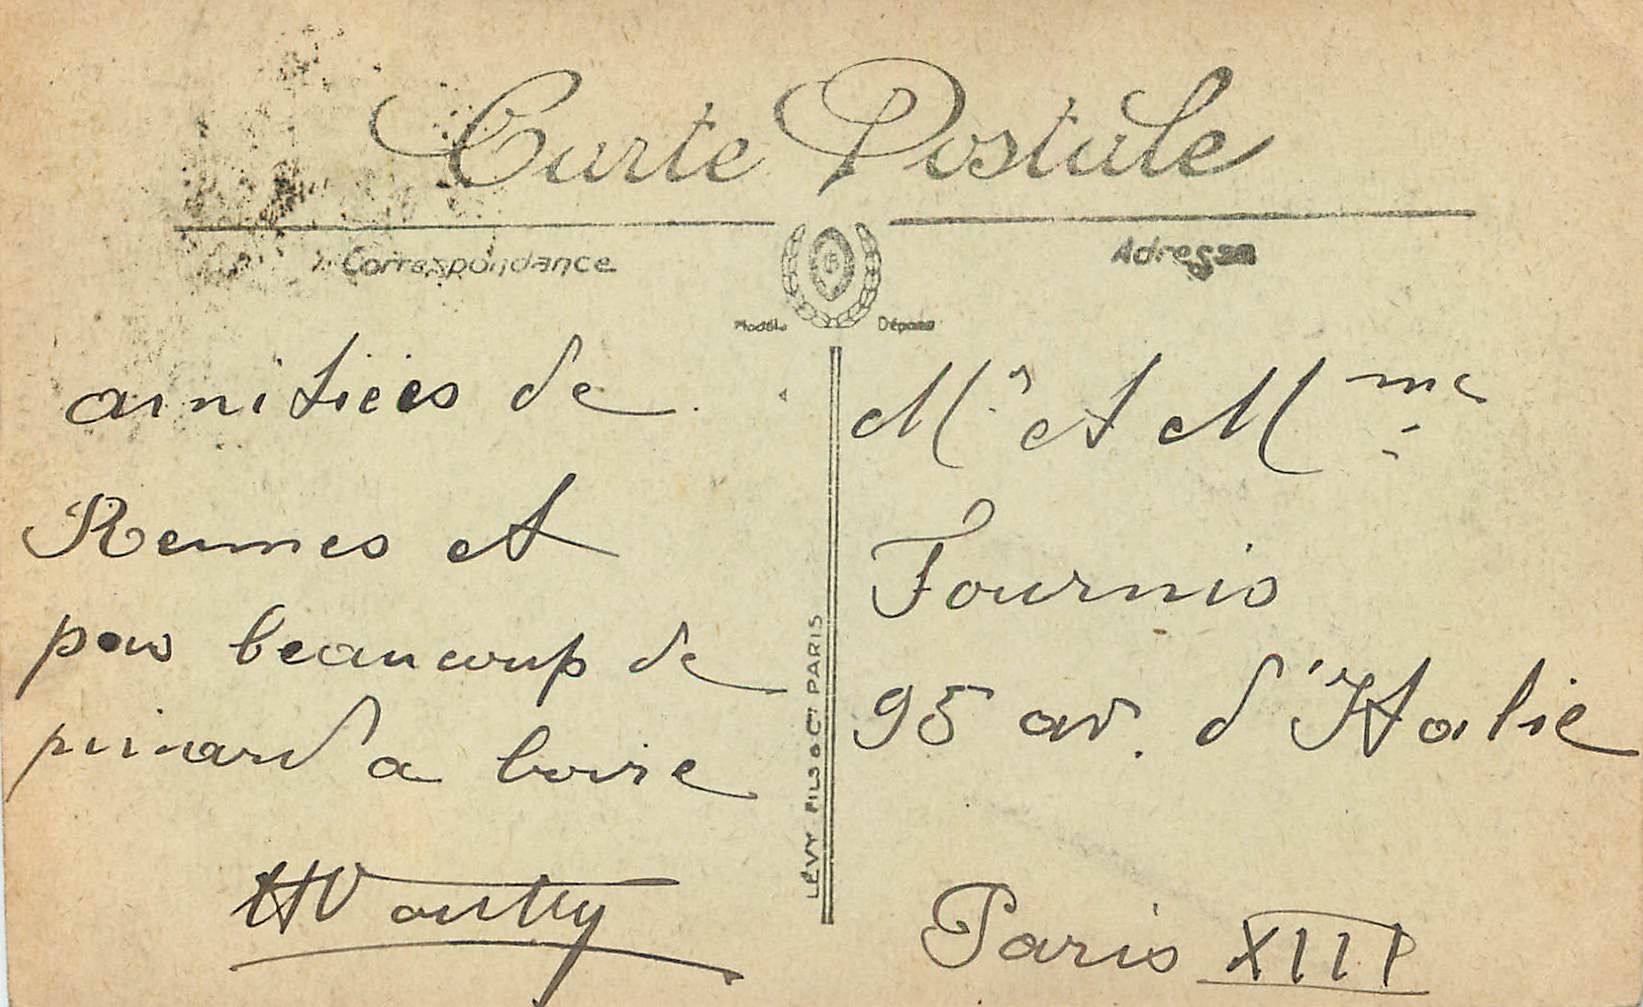 Carte Postale
Correspondance
Adresse
Modèle Déposé
amitiées de
Rennes et
pas beaucoup de
pinard a boire
Mr et Mme
Fournis
95 av. d'Italie
Paris XIII
LÉVY FILS & Cie PARIS